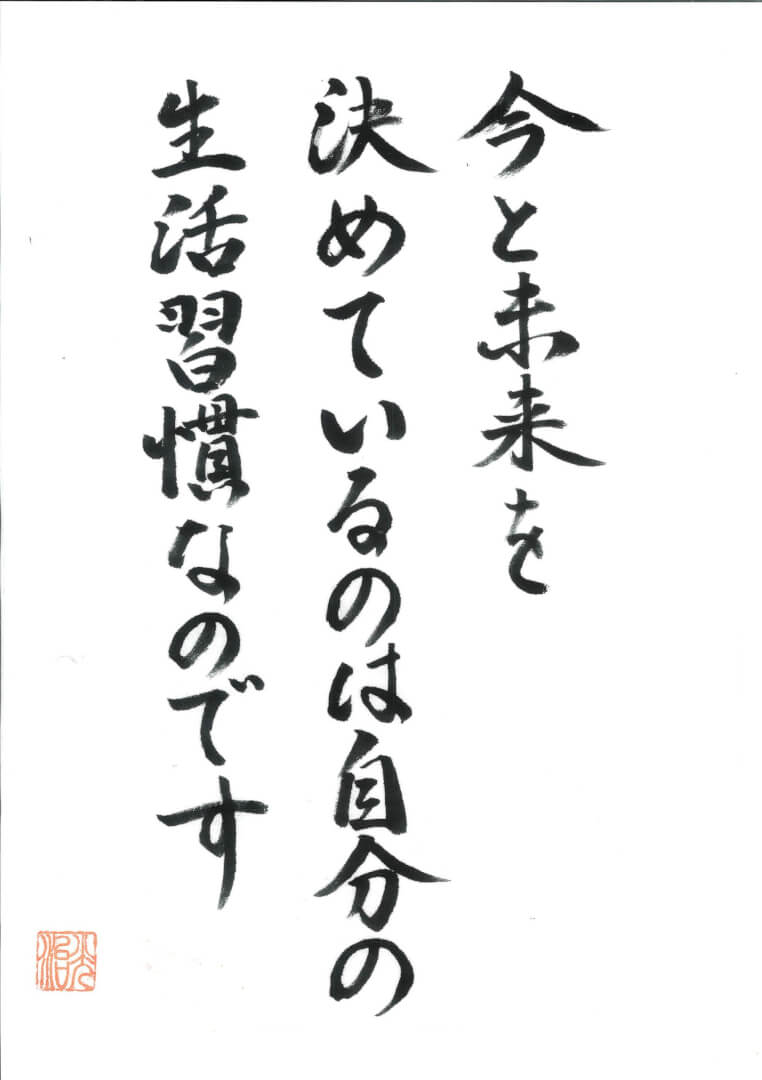 今と未来を
決めているのは自分の
生活習慣なのです